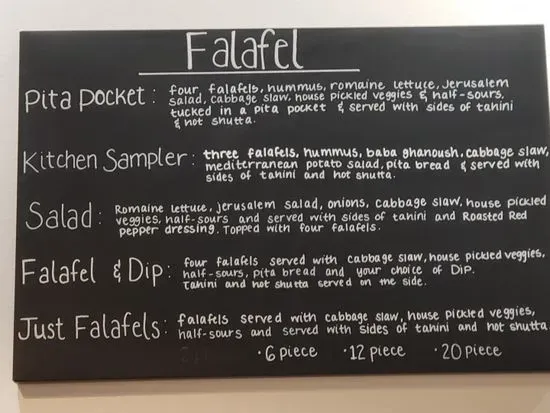 Falafel
Pita Pocket: four falafels, hummus, romaine lettuce, Jerusalem
salad, cabbage slaw, house pickled veggies & half-sours,
tucked in a pita pocket & served with sides of tahini
& hot shutta.
Kitchen Sampler: three falafels, hummus, baba ghanoush, cabbage slaw,
mediterranean potato salad, pita bread & served with
sides of tahini and hot shutta.
Salad: Romaine lettuce, jerusalem salad, onions, cabbage slaw, house pickled
veggies, half-sours and served with sides of tahini and Roasted Red
pepper dressing. Topped with four falafels.
Falafel & Dip: four falafels served with cabbage slaw, house pickled veggies,
half-sours, pita bread and your choice of Dip.
tahini and hot shutta served on the side.
Just Falafels: falafels served with cabbage slaw, house pickled veggies,
half-sours and served with sides of tahini and hot shutta.
· 6 piece · 12 piece · 20 piece